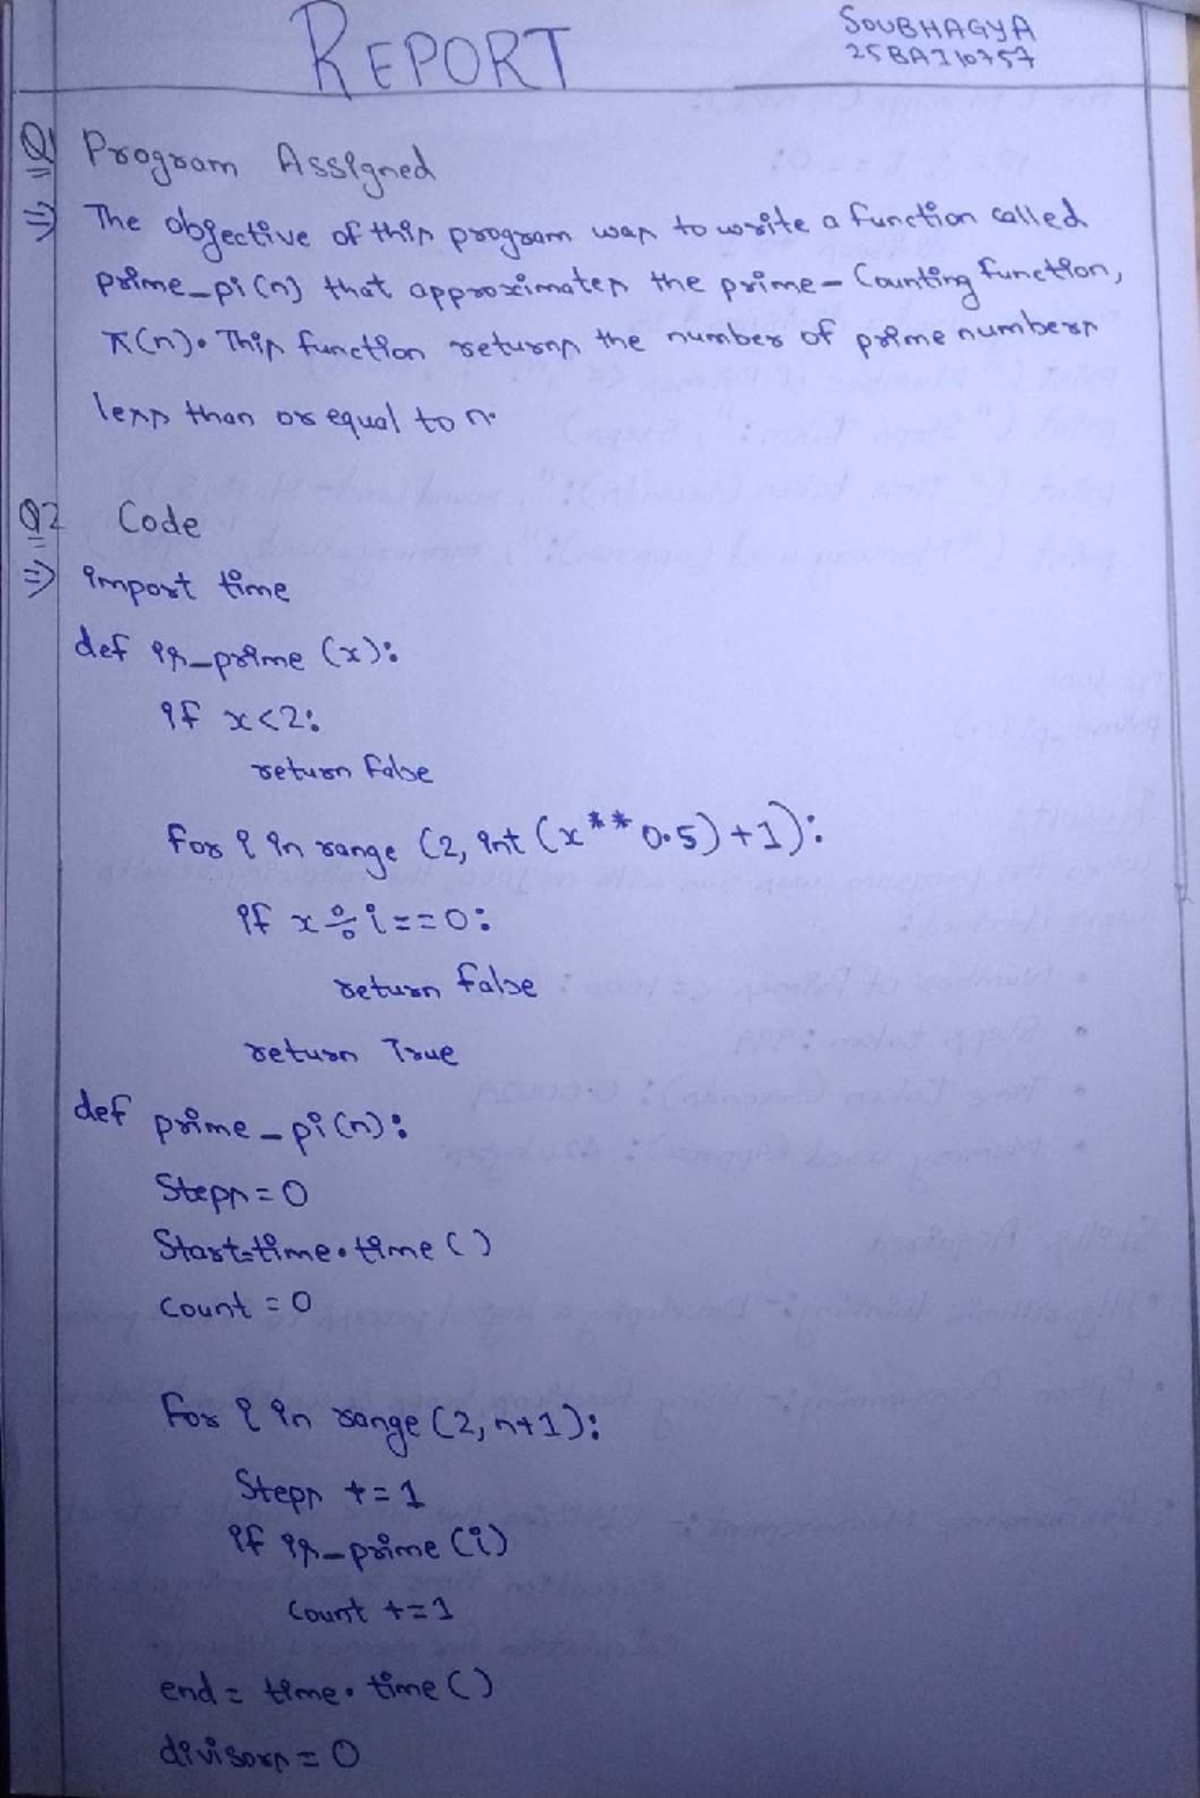 REPORT
SOUBHAGYA
25BAI10757
Q1 Program Assigned
=> The objective of this program was to write a function called
prime_pi(n) that approximates the prime-Counting function,
π(n). This function returns the number of prime numbers
less than or equal to n.
Q2 Code
=> import time
def is_prime (x):
if x<2:
return False
for i in range (2, int (x**0.5)+1):
if x % i==0:
return False
return True
def prime_pi(n):
Steps=0
Start=time.time()
count=0
for i in range(2,n+1):
Steps += 1
if is_prime(i)
Count +=1
end= time.time()
divisors=0